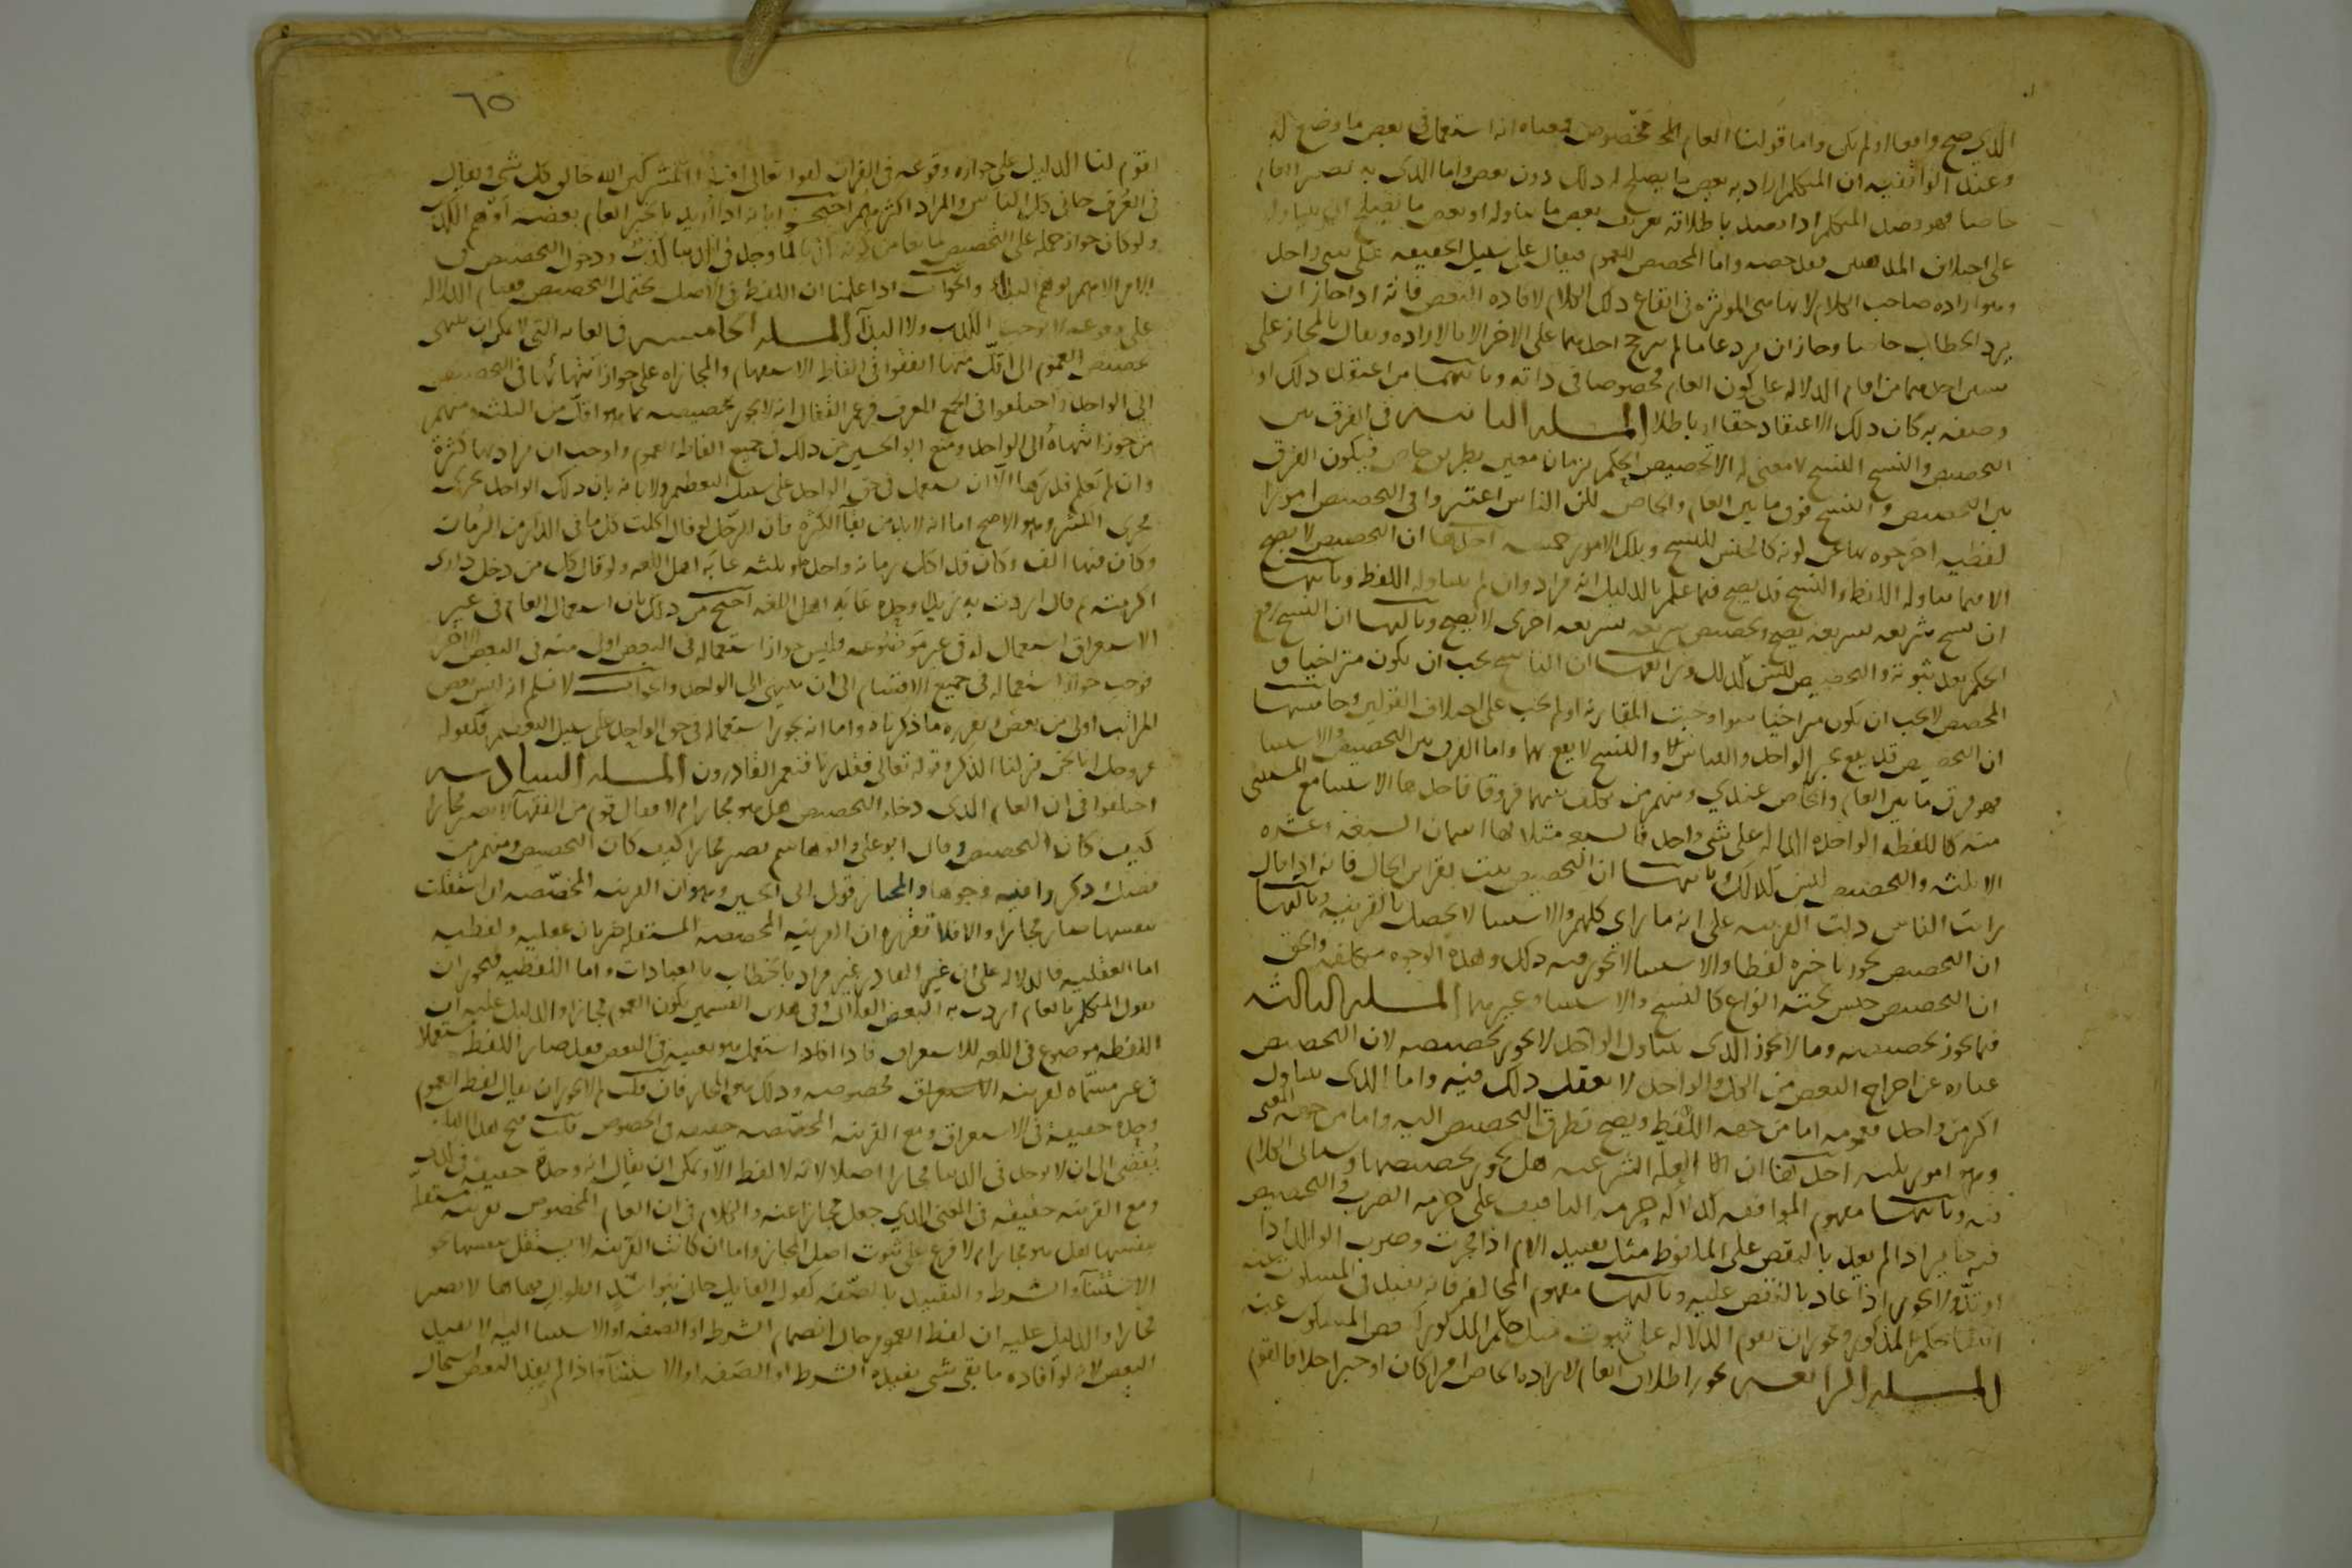 الذي صح واقعا او لم يكن واما قولنا العام المخصوص فمعناه انه استعمل في بعض ما وضع له
وعند الواقفية ان المتكلم اراد به بعض ما يصلح له ذلك دون بعض واما الذي به يصير العام
خاصا فهو قصد المتكلم اذا قصد باطلاقه تعريف بعض ما تناوله او بعض ما يصلح ان يتناوله
على اختلاف المذهبين فقد خصه واما المخصص للعموم فيقال على سبيل الحقيقه على شي واحد
وهو اراده صاحب الكلام لانها هي الموثره في ايقاع ذلك الكلام لافاده البعض فانه اذا جاز ان
يرد الخطاب خاصا وجاز ان يرد عاما لم يترجح احدهما على الاخر الا بالاراده ويقال بالمجاز على
شيين احدهما من اقام الدلاله على كون العام مخصوصا في ذاته وثانيهما من اعتقد ذلك او
وصفه به كان ذلك الاعتقاد حقا او باطلا المسله الثانيه في الفرق بين
التخصيص والنسخ النسخ لا معنى له الا تخصيص الحكم بزمان معين بطريق خاص فيكون الفرق
بين التخصيص والنسخ فرق ما بين العام والخاص لكن الناس اعتبروا في التخصيص امورا
لفظيه اخرجوه بها عن كونه كالجنس للنسخ وتلك الامور خمسه احدها ان التخصيص لا يصح
الا فيما تناوله اللفظ والنسخ قد يصح فيما علم بالدليل انه مراد وان لم يتناوله اللفظ وثانيها
ان نسخ شريعه بشريعه يصح وتخصيص شريعه بشريعه اخرى لا يصح وثالثها ان النسخ رفع
الحكم بعد ثبوته والتخصيص ليس كذلك ورابعها ان الناسخ يجب ان يكون متراخيا و
المخصص لا يجب ان يكون متراخيا سوا وجبت المقارنه او لم يجب على اختلاف القولين وخامسها
ان التخصيص قد يقع بخبر الواحد والقياس والنسخ لا يقع بهما واما الفرق بين التخصيص والاستثنا
فهو فرق ما بين العام والخاص عندي ومنهم من تكلف بينهما فروقا فاحدها الاستثنا مع المستثنى
منه كاللفظه الواحده الداله على شي واحد فالسبعه مثلا لها اسمان السبعه وعشره
الا ثلثه والتخصيص ليس كذلك وثانيها ان التخصيص يثبت بقراين الحال فانه اذا قال
رايت الناس دلت القرينه على انه ما راى كلهم والاستثنا لا يحصل بالقرينه وثالثها
ان التخصيص يجوز تاخيره لفظا والاستثنا لا يجوز فيه ذلك وهذه الوجوه متكلفه والحق
ان التخصيص جنس تحته انواع كالنسخ والاستثنا وغيرهما المسله الثالثه
فيما يجوز تخصيصه وما لا يجوز الذي يتناول الواحد لا يجوز تخصيصه لان التخصيص
عباره عن اخراج البعض من الكل والواحد لا يعقل ذلك فيه واما الذي يتناول
اكثر من واحد فعمومه اما من جهه اللفظ ويصح تطرق التخصيص اليه واما من جهه المعنى
وهو امور ثلثه احدها العله الشرعيه هل يجوز تخصيصها وسياتي الكلام
فيه وثانيها مفهوم الموافقه كدلاله حرمه التافيف على حرمه الضرب والتخصيص
فيه جايز اذا لم يعد بالنقص على الملفوظ مثل تقييد الام اذا فجرت وضرب الوالد اذا
ارتد ولا يجوز اذا عاد بالنقض عليه وثالثها مفهوم المخالفه فانه يفيد في المسكوت عنه
انتفا حكم المذكور ويجوز ان تقوم الدلاله على ثبوت مثل حكم المذكور لبعض المسكوت عنه
المسله الرابعه يجوز اطلاق العام لاراده الخاص امرا كان او خبرا خلافا لقوم
٦٥
لقوم لنا الدليل على جوازه وقوعه في القران لقوله تعالى اقتلوا المشركين الله خالق كل شي ويقال
في العرف جاني كل الناس والمراد اكثرهم احتجوا بانه اذا اريد بالخبر العام بعضه اوهم الكذب
ولو كان جواز حمله على التخصيص مانعا من كونه كذبا لما وجد في الدنيا كذب ودخول التخصيص في
الامر الامر يوهم البداء والجواب اذا علمنا ان اللفظ في الاصل يحتمل التخصيص فقيام الدلاله
على وقوعه لا يوجب الكذب ولا البدآ المسله الخامسه في الغايه التي لا يمكن ان ينتهي
تخصيص العموم الى اقل منها اتفقوا في الفاظ الاستفهام والمجازاه على جواز انتهائها في التخصيص
الى الواحد واختلفوا في الجمع المعرف فزعم القفال انه لا يجوز تخصيصه بما هو اقل من الثلثه ومنهم
من جوز انتهاه الى الواحد ومنع ابو الحسين من ذلك في جميع الفاظ العموم واوجب ان يراد بها كثره
وان لم نعلم قدرها الا ان تستعمل في حق الواحد على سبيل التعظيم والابانه بان ذلك الواحد يجري
مجرى الكثير وهو الاصح اما انه لا بد من بقآ الكثره فان الرجل لو قال اكلت كل ما في الدار من الرمان
وكان فيها الف وكان قد اكل رمانه واحده او ثلثه عابه اهل اللغه ولو قال كل من دخل داري
اكرمته ثم قال اردت به زيدا وحده عابه اهل اللغه احتج من ذلك بان استعمال العام في غير
الاستغراق استعمال له في غير موضوعه فليس جواز استعماله في البعض اولى منه في البعض الاخر
فوجب جواز استعماله في جميع الاقسام الى ان ينتهي الى الواحد والجواب لا نسلم انه ليس بعض
المراتب اولى من بعض وتقريره ما ذكرناه واما انه يجوز استعماله في حق الواحد على سبيل التعظيم فكقوله
عز وجل انا نحن نزلنا الذكر وقوله تعالى فقدرنا فنعم القادرون المسله السادسه
اختلفوا في ان العام الذي دخله التخصيص هل هو مجاز ام لا فقال قوم من الفقهآ لا يصير مجازا
كيف كان التخصيص وقال ابو علي وابو هاشم يصير مجازا كيف كان التخصيص ومنهم من
فصل وذكروا فيه وجوها والمختار قول ابي الحسين وهو ان القرينه المخصصه ان استقلت
بنفسها صار مجازا والا فلا تقريره ان القرينه المخصصه المستقله ضربان عقليه ولفظيه
اما العقليه فالدلاله على ان غير القادر غير مراد بالخطاب بالعبادات واما اللفظيه فيجوز ان
يقول المتكلم بالعام اردت به البعض الفلاني وفي هذين القسمين يكون العموم مجازا والدليل عليه ان
اللفظه موضوع في اللغه للاستغراق فاذا استعمل هو بعينه في البعض فقد صار اللفظ مستعملا
في غير مسماه لقرينه مخصوصه وذلك هو المجاز فان قلت لم لا يجوز ان يقال لفظ العموم
وحده حقيقه في الاستغراق ومع القرينه المخصصه حقيقه في الخصوص قلت فتح هذا الباب
يفضي الى ان لا يوجد في الدنيا مجاز اصلا لانه لا لفظ الا ويمكن ان يقال انه وحده حقيقه في كذا
ومع القرينه حقيقه في المعنى الذي جعل مجازا عنه والكلام في ان العام المخصوص بقرينه مستقله
بنفسها هل هو مجاز ام لا فرع على ثبوت اصل المجاز واما ان كانت القرينه لا تستقل بنفسها نحو
الاستثنآ والشرط والتقييد بالصفه كقول القايل جاني بنو اسد الطوال فهاهنا لا يصير
مجازا والدليل عليه ان لفظ العموم حال انضمام الشرط او الصفه او الاستثنا اليه لا يفيد
البعض لانه لو افاده ما بقي شي يفيده الشرط او الصفه او الاستثنآ واذا لم يفد البعض استحال